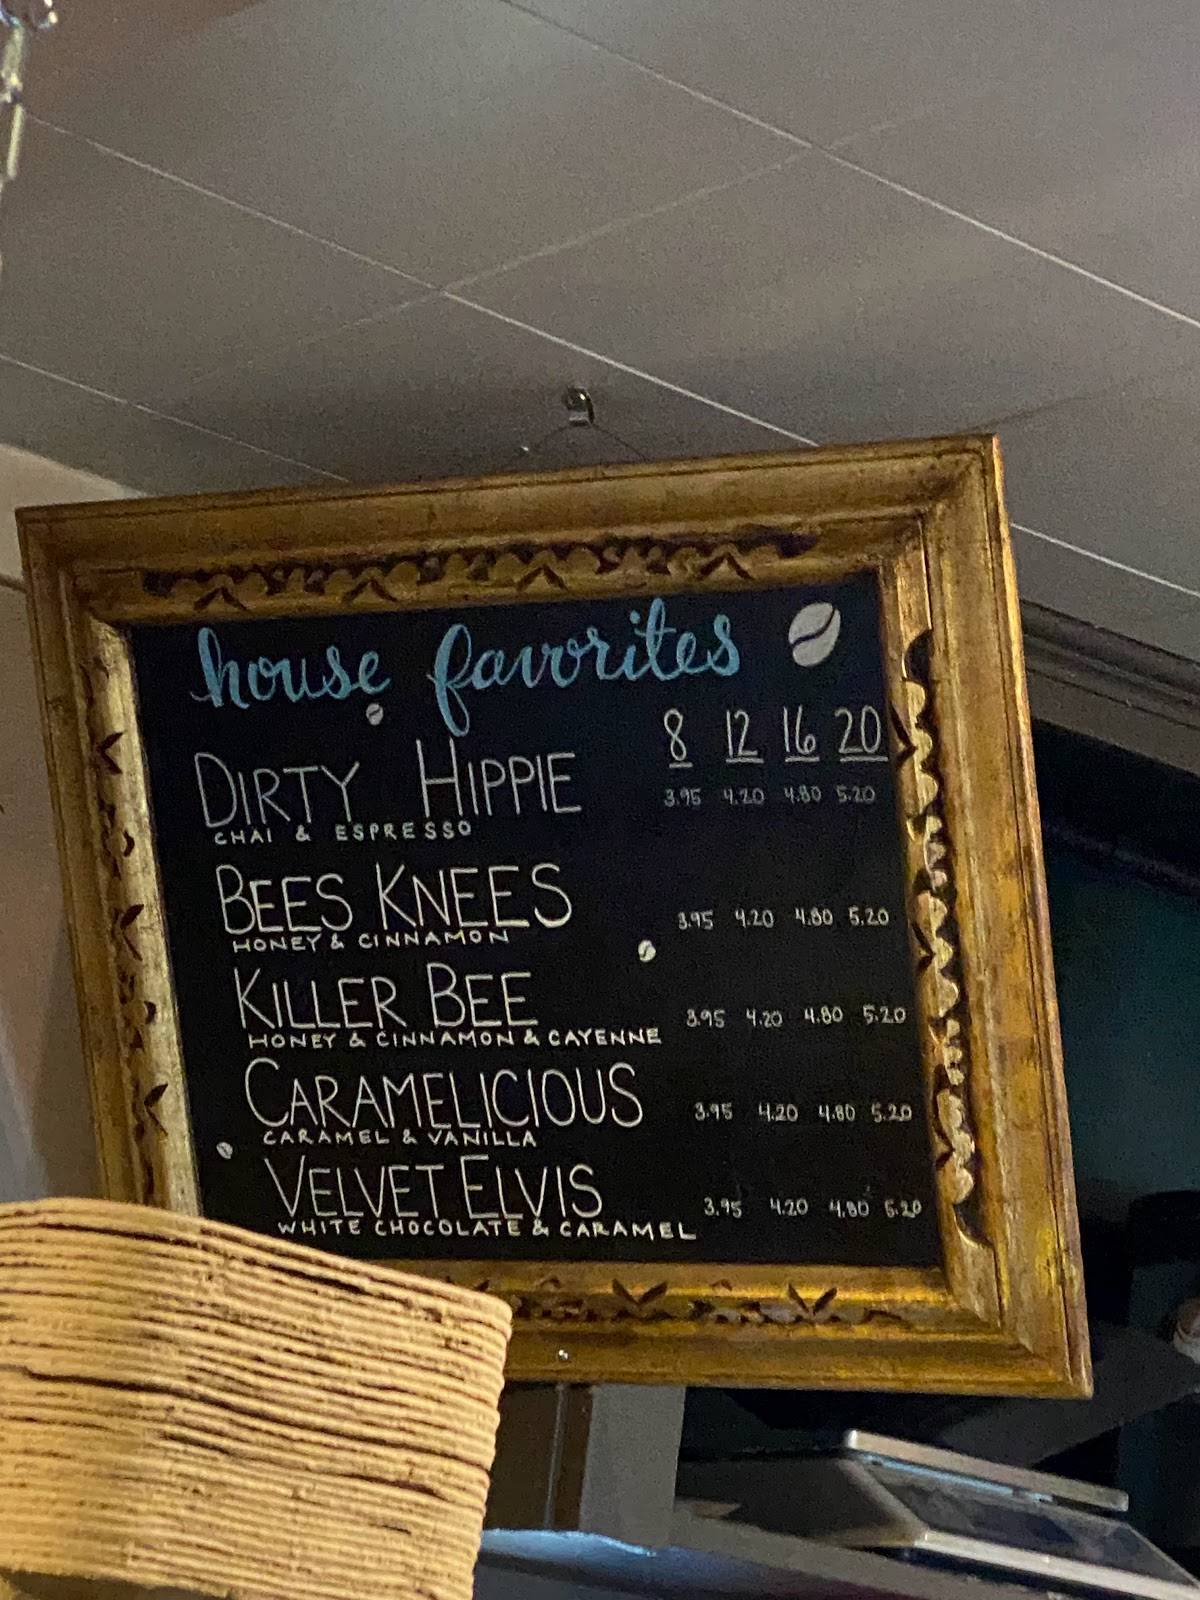 house favorites
8 12 16 20
DIRTY HIPPIE 3.95 4.20 4.80 5.20
CHAI & ESPRESSO
BEES KNEES 3.95 4.20 4.80 5.20
HONEY & CINNAMON
KILLER BEE 3.95 4.20 4.80 5.20
HONEY & CINNAMON & CAYENNE
CARAMELICIOUS 3.95 4.20 4.80 5.20
CARAMEL & VANILLA
VELVET ELVIS 3.95 4.20 4.80 5.20
WHITE CHOCOLATE & CARAMEL